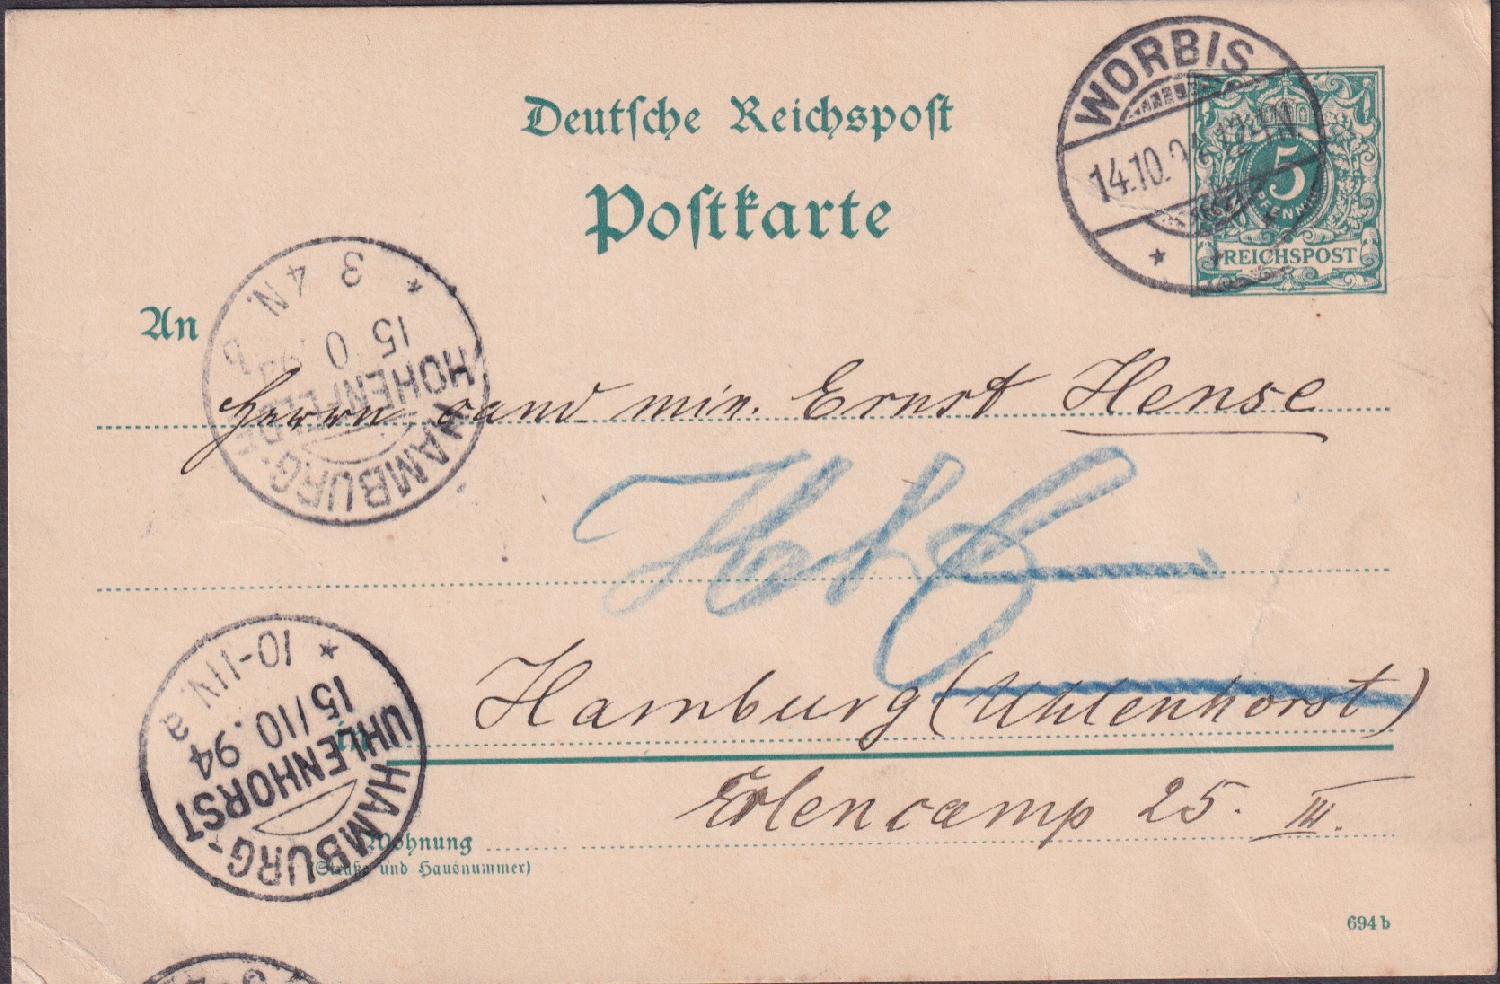 Deutsche Reichspost
Postkarte
WORBIS
14.10.94
5
PFENNIG
REICHSPOST
An
Herrn cand min. Ernst Hense
HAMBURG-HOHENFELDE
15 94
3 4 N.
b
Hbf
in
Hamburg (Uhlenhorst)
HAMBURG-UHLENHORST
15/10.94
10-11N. a
Erlencamp 25. III.
Wohnung
(Straße und Hausnummer)
694 b